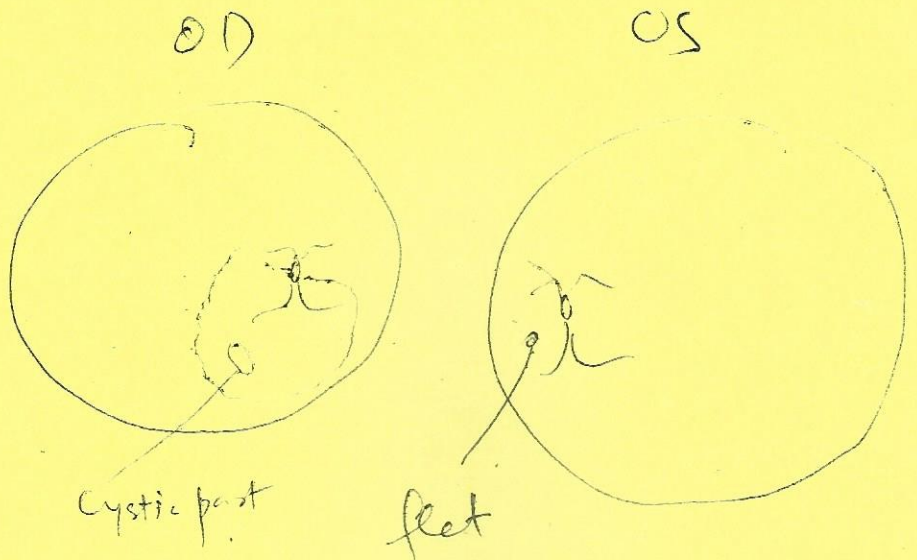 OD
OS
Cystic part
flat